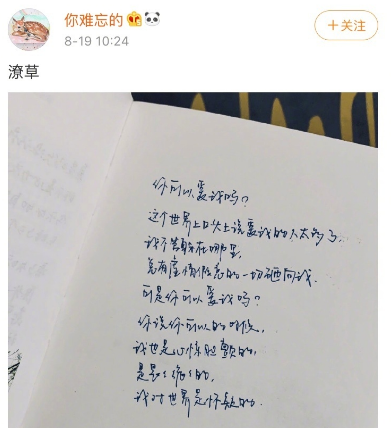 你难忘的
8-19 10:24
+关注
潦草
你可以爱我吗？
这个世界上口头上说爱我的人太多了
我不管躲在哪里，
总有虚情假意的一切涌向我.
可是你可以爱我吗？
你说你可以的时候，
我也是心惊胆颤的，
是小心的，
我对世界是怀疑的.